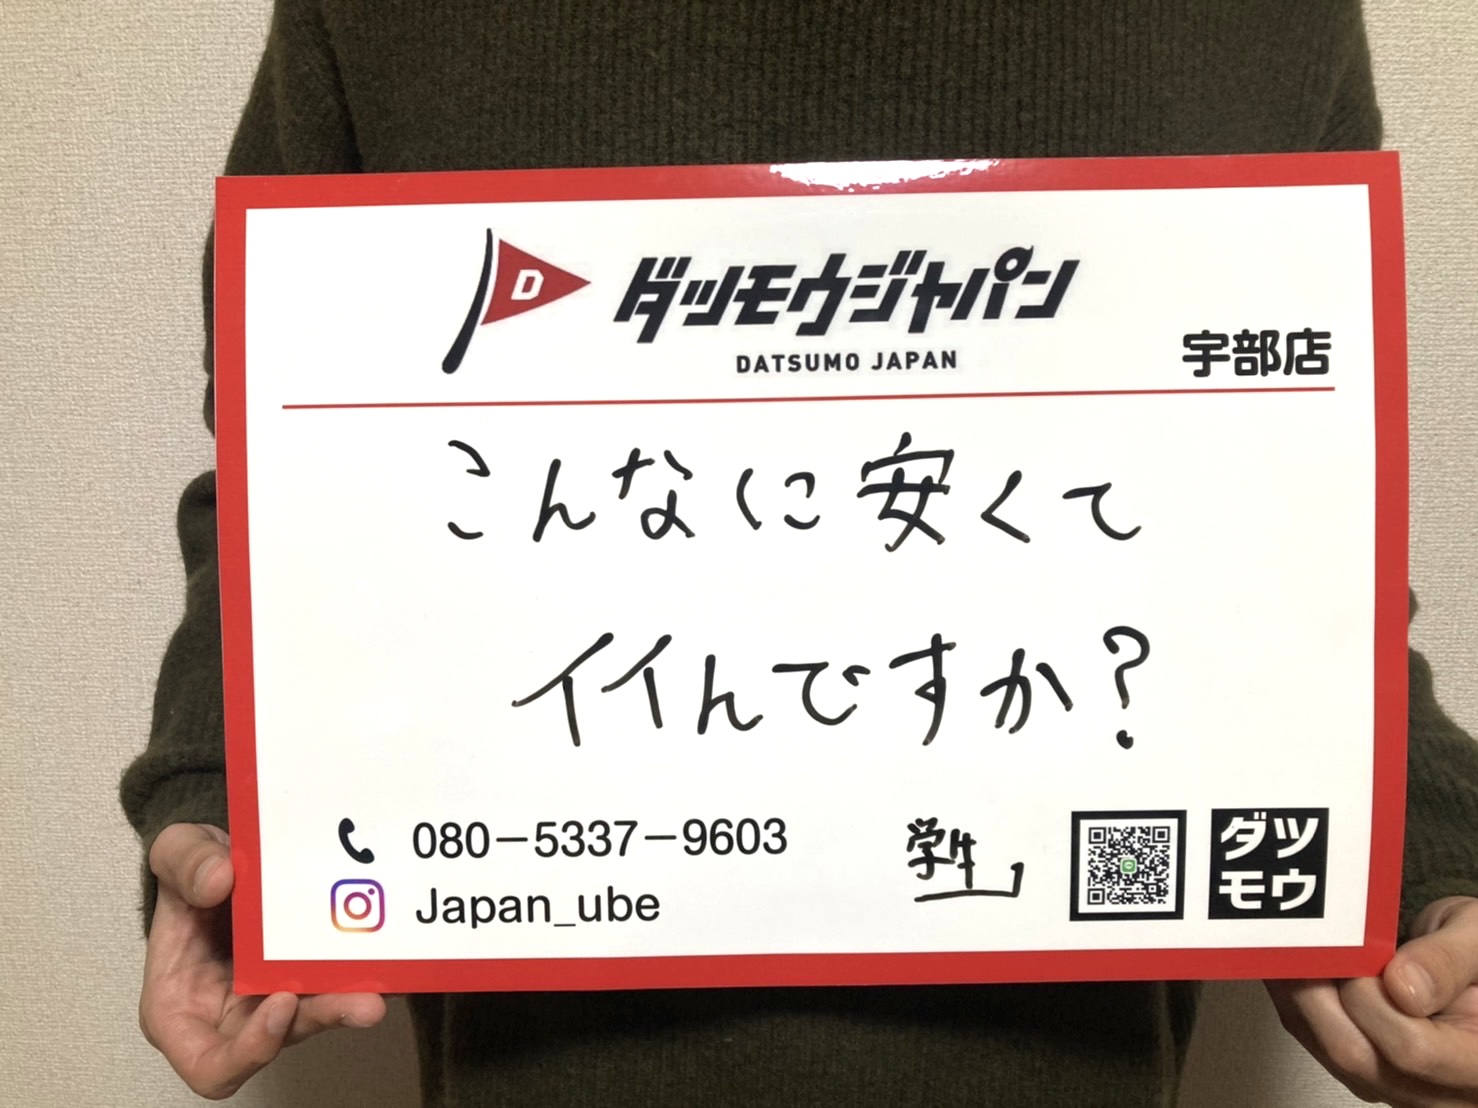 D
ダツモウジャパン
DATSUMO JAPAN
宇部店
こんなに安くて
イイんですか?
080-5337-9603
学生
Japan_ube
ダツ
モウ